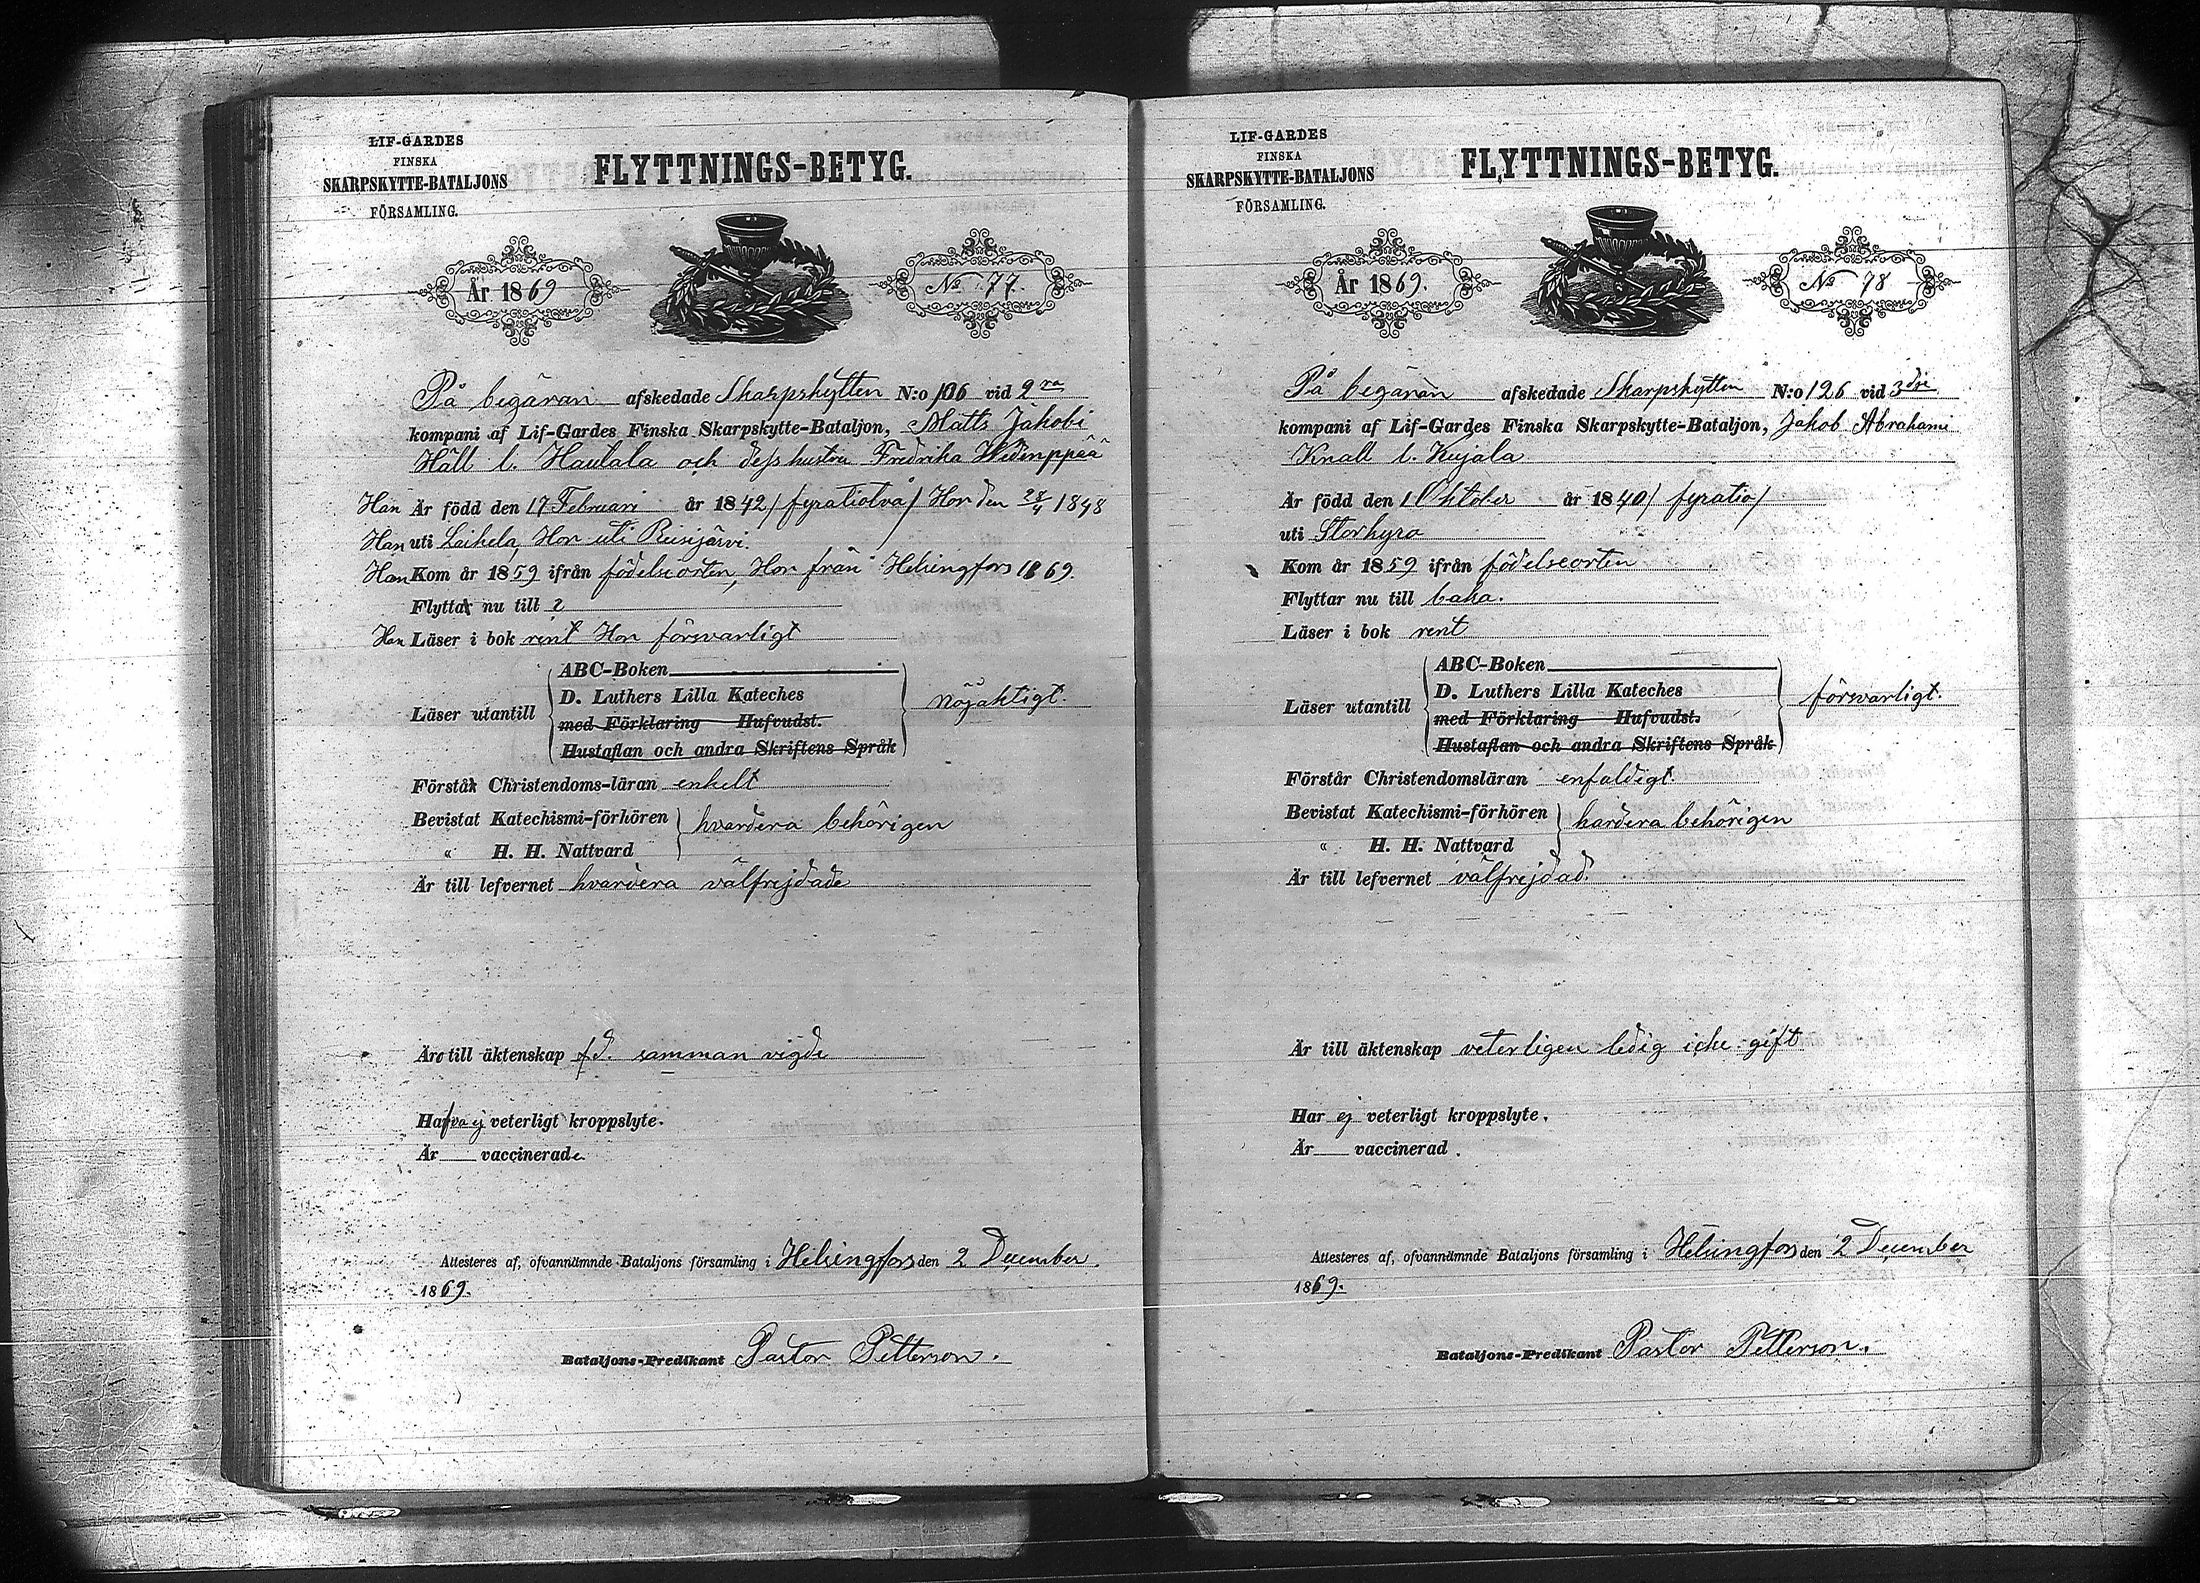 LIF-GARDES
FINSKA
SKARPSKYTTE-BATALJONS
FÖRSAMLING.
FLYTTNINGS-BETYG.
År 1869
No 77.
På begäran afskedade Skarpskytten N:o 106 vid 2ra
kompani af Lif-Gardes Finska Skarpskytte-Bataljon, Matts Jakobi
Häll l. Haulala och dess hustru Fredrika
Han Är född den 17 Februari år 1842 / fyratiotvå / Hon den 28/4 1848
Han uti Laihela, Hon uti Reisijärvi.
Han Kom år 1859 ifrån födelseorten, Hon från Helsingfors 1869.
Flytta nu till
Han Läser i bok rent Hon försvarligt
Läser utantill
ABC-Boken
D. Luthers Lilla Kateches
med Förklaring Hufvudst.
Hustaflan och andra Skriftens Språk
nöjaktigt.
Förstå Christendoms-läran enkelt
Bevistat Katechismi-förhören
« H. H. Nattvard
hvardera behörigen
Är till lefvernet hvardera välfrejdade
Äro till äktenskap f.d. samman vigde
Hafva ej veterligt kroppslyte.
Är vaccinerade
Attesteres af, ofvannämnde Bataljons församling i Helsingfors den 2 December
1869.
Bataljons-Predikant Pastor Petterson.
LIF-GARDES
FINSKA
SKARPSKYTTE-BATALJONS
FÖRSAMLING.
FLYTTNINGS-BETYG.
År 1869.
No 78
På begäran afskedade Skarpskytten N:o 126 vid 3dje
kompani af Lif-Gardes Finska Skarpskytte-Bataljon, Jakob Abrahami
Knall l. Kujala
Är född den 1 Oktober år 1840 / fyratio /
uti Storkyro
Kom år 1859 ifrån födelseorten
Flyttar nu till baka.
Läser i bok rent
Läser utantill
ABC-Boken
D. Luthers Lilla Kateches
med Förklaring Hufvudst.
Hustaflan och andra Skriftens Språk
försvarligt.
Förstår Christendomsläran enfaldigt.
Bevistat Katechismi-förhören
« H. H. Nattvard
hardera behörigen
Är till lefvernet välfrejdad.
Är till äktenskap veterligen ledig icke gift
Har ej veterligt kroppslyte.
Är vaccinerad.
Attesteres af, ofvannämnde Bataljons församling i Helsingfors den 2 December
1869.
Bataljons-Predikant Pastor Petterson.